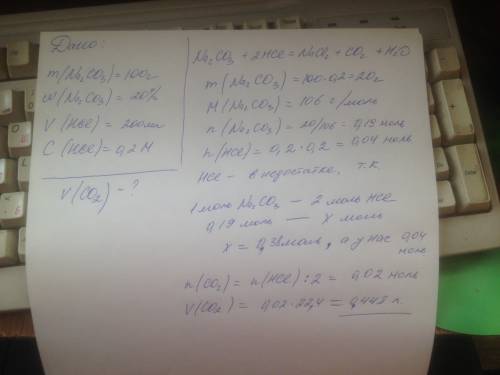 Дано:
m(Na₂CO₃)=100г
ω(Na₂CO₃)=20%
V(HCl)=200мл
C(HCl)=0,2 М
V(CO₂) - ?
Na₂CO₃ + 2HCl = NaCl₂ + CO₂ + H₂O
m(Na₂CO₃)=100·0,2=20г
M(Na₂CO₃)=106 г/моль
n(Na₂CO₃)=20/106=0,19 моль
n(HCl)=0,2·0,2=0,04 моль
HCl - в недостатке, т.к.
1 моль Na₂CO₃ - 2 моль HCl
0,19 моль - x моль
x = 0,38моль, а у нас 0,04
моль
n(CO₂)=n(HCl):2 = 0,02 моль
V(CO₂)= 0,02·22,4 = 0,448 л.